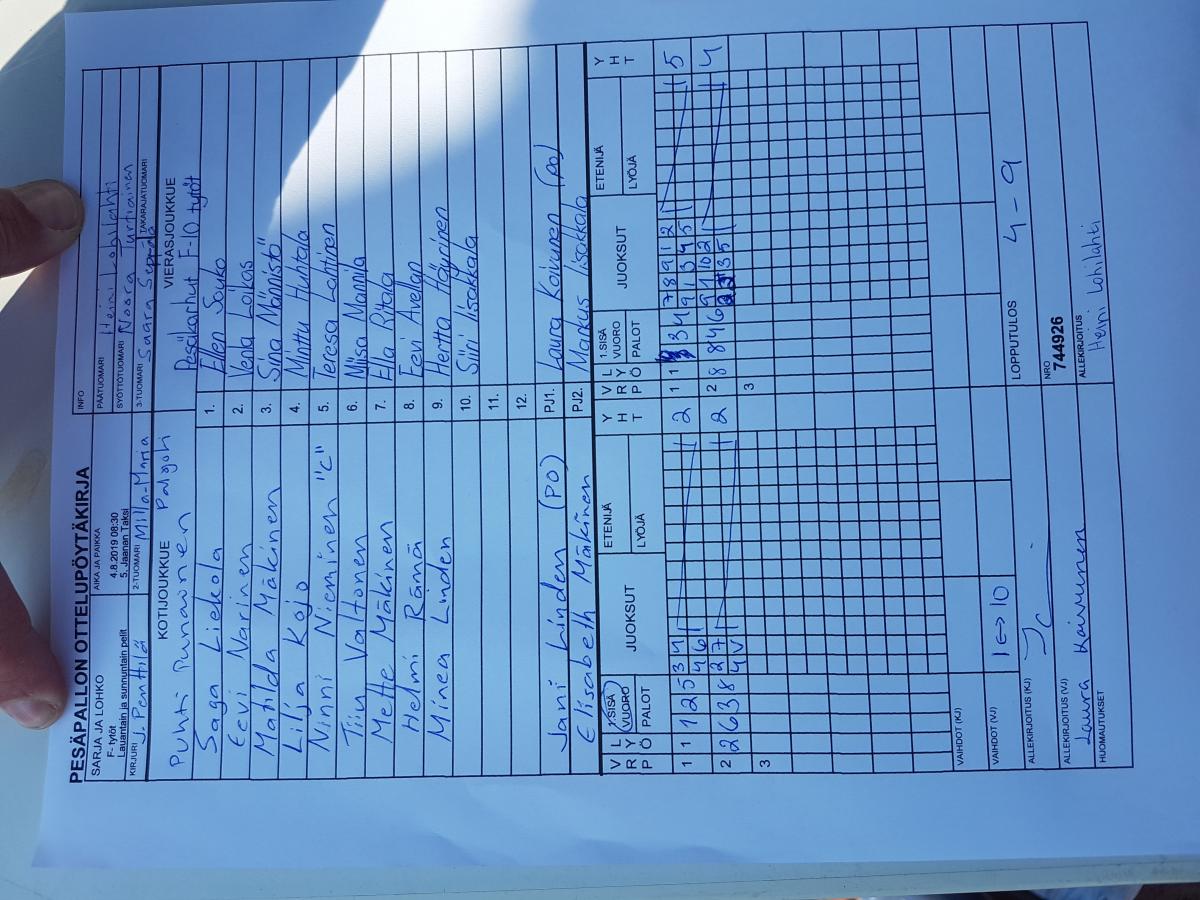 PESÄPALLON OTTELUPÖYTÄKIRJA
SARJA JA LOHKO
F- tytöt
Lauantain ja sunnuntain pelit
AIKA JA PAIKKA
4.8.2019 08:30
5. Jaanan Taksi
INFO
PÄÄTUOMARI Heini Lohilahti
SYÖTTÖTUOMARI Noora Turtiainen
KIRJURI J. Penttilä
2-TUOMARI Milla-Maria
3-TUOMARI Saara Seppälä
TAKARAJATUOMARI
KOTIJOUKKUE
VIERASJOUKKUE
Puhti Punainen
Pesäkarhut F-10 tytöt
Saga Liehola 1. Ellen Souko
Eevi Narinen 2. Venla Löikas
Matilda Mäkinen 3. Siina Männistö
Lilja Kojo 4. Minttu Huhtala
Ninni Nieminen "C" 5. Teresa Lahtinen
Tiin Valtonen 6. Miisa Mannila
Mette Mäkinen 7. Ella Ritala
Helmi Rämä 8. Eevi Avellan
Minea Linden 9. Hertta Höyninen
10. Siiri Iisakkala
11.
12.
Jani Linden (PO) PJ1. Laura Koivunen (PO)
Elisabeth Mäkinen PJ2. Markus Iisakkala
V R P L Y Ö 1.SISÄ VUORO PALOT JUOKSUT ETENIJÄ LYÖJÄ Y H T V R P L Y Ö 1.SISÄ VUORO PALOT JUOKSUT ETENIJÄ LYÖJÄ Y H T
1 1 1 2 5 3 4 2 1 1 3 4 7 8 9 1 2 5
4 6 9 1 3 4 5
2 2 6 3 8 2 7 2 2 8 8 4 6 9 1 10 2 4
4 V 3 5
3 3
VAIHDOT (KJ)
VAIHDOT (VJ) 1 ↔ 10
LOPPUTULOS 4 - 9
ALLEKIRJOITUS (KJ)
NRO
744926
ALLEKIRJOITUS (VJ) Laura Koivunen
ALLEKIRJOITUS Heini Lohilahti
HUOMAUTUKSET